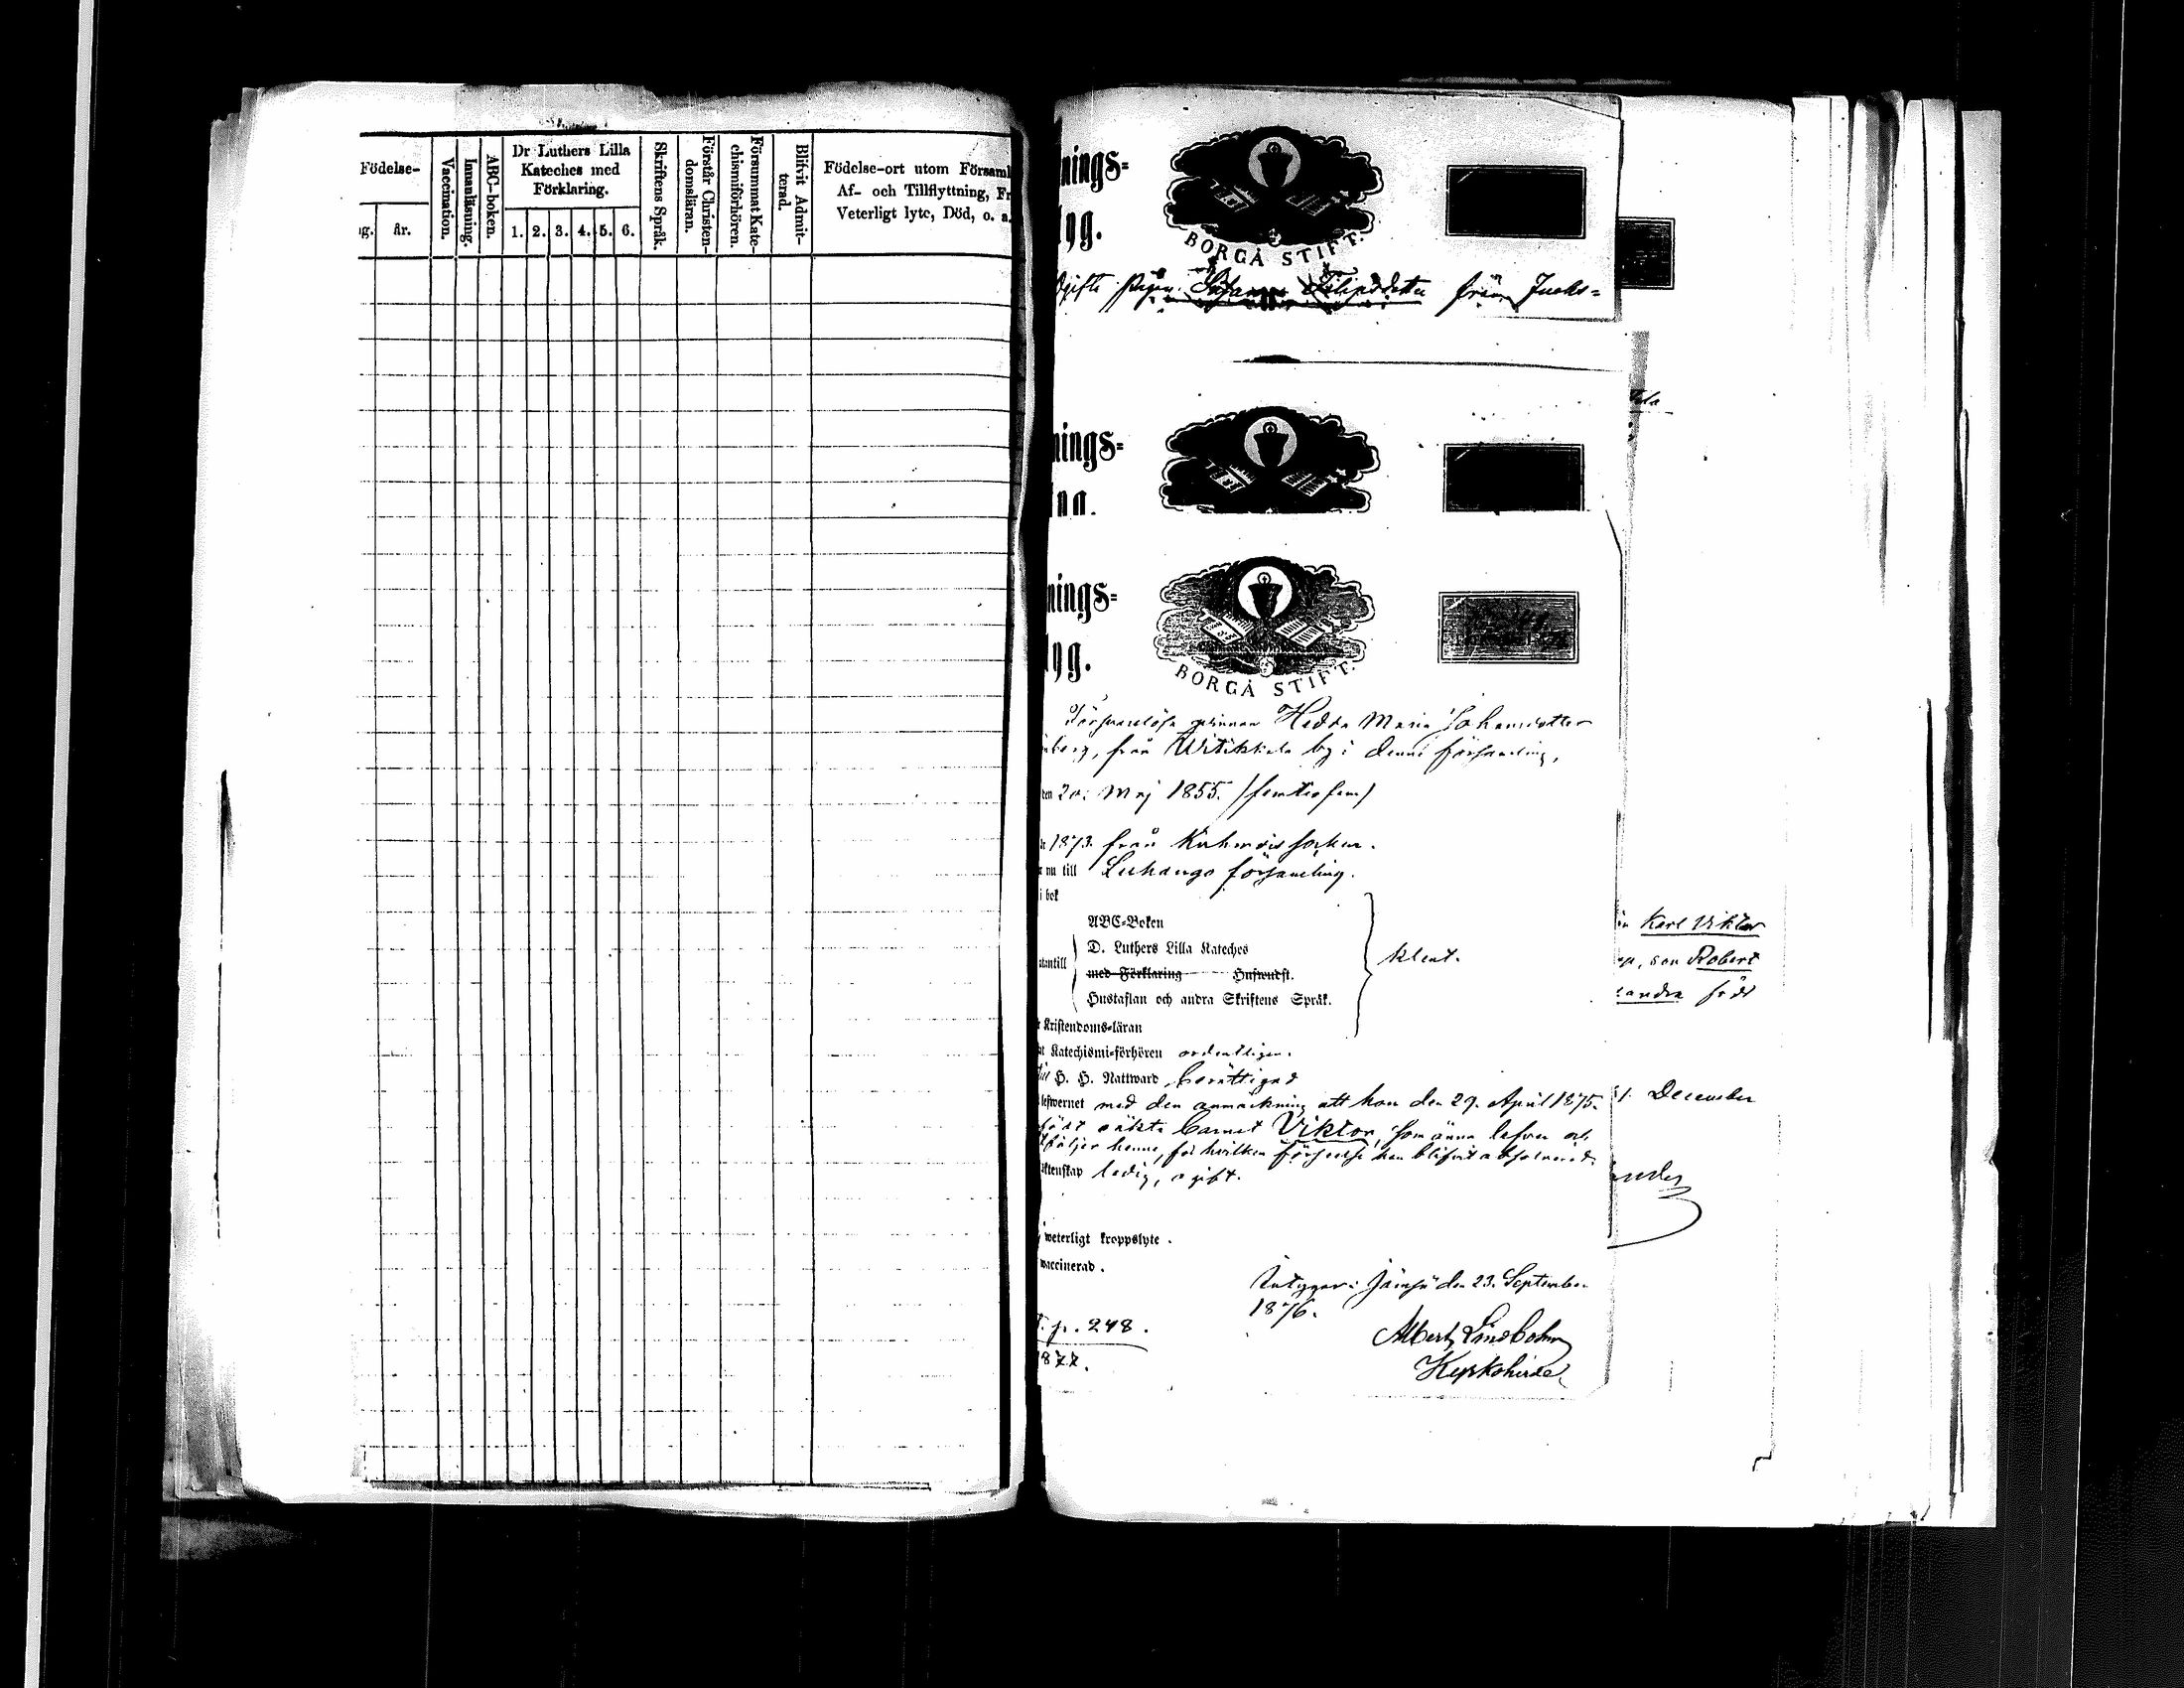 Födelse-
år.
Vaccination.
Innanläsning.
ABC-boken.
Dr Luthers Lilla
Kateches med
Förklaring.
1. 2. 3. 4. 5. 6.
Skriftens Språk.
Förstår Christen-
domsläran.
Försummat Kate-
chismiförhören.
Blifvit Admit-
terad.
Födelse-ort utom Församl
Af- och Tillflyttning, Fr
Veterligt lyte, Död, o. a.
nings=
yg.
BORGÅ STIFT.
från
nings=
nings=
yg.
BORGÅ STIFT.
Försvarslösa qvinnan Hedda Maria Johansdotter
berg, från Witikkala by i denna församling,
den 20. Maj 1855. (femtiofem)
1873. från Kuhmois socken.
nu till Luhango församling.
i bok
ABC-Boken
D. Luthers Lilla Kateches
med Förklaring Huspust.
Hustaflan och andra Skriftens Språk.
klent.
Kristendoms-läran
Katechismi-förhören ordentligen.
H. H. Nattward berättigad
lefwernet med den anmärkning att hon den 29. April 1875.
födt oäkta barnet Viktor, som ännu lefver och
följer henne, för hvilken förseelse hon blifvit absolverad.
ktenskap ledig, ogift.
weterligt kroppslyte.
vaccinerad.
Intygar: Jämsä den 23. September
1876.
Albert Lindbohm
Kyrkoherde
p. 248.
1877.
Karl Viktor
son Robert
andra född
1. December